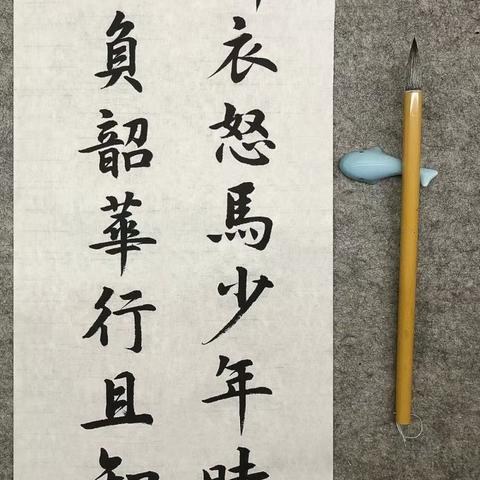 衣怒馬少年時
負韶華行且知